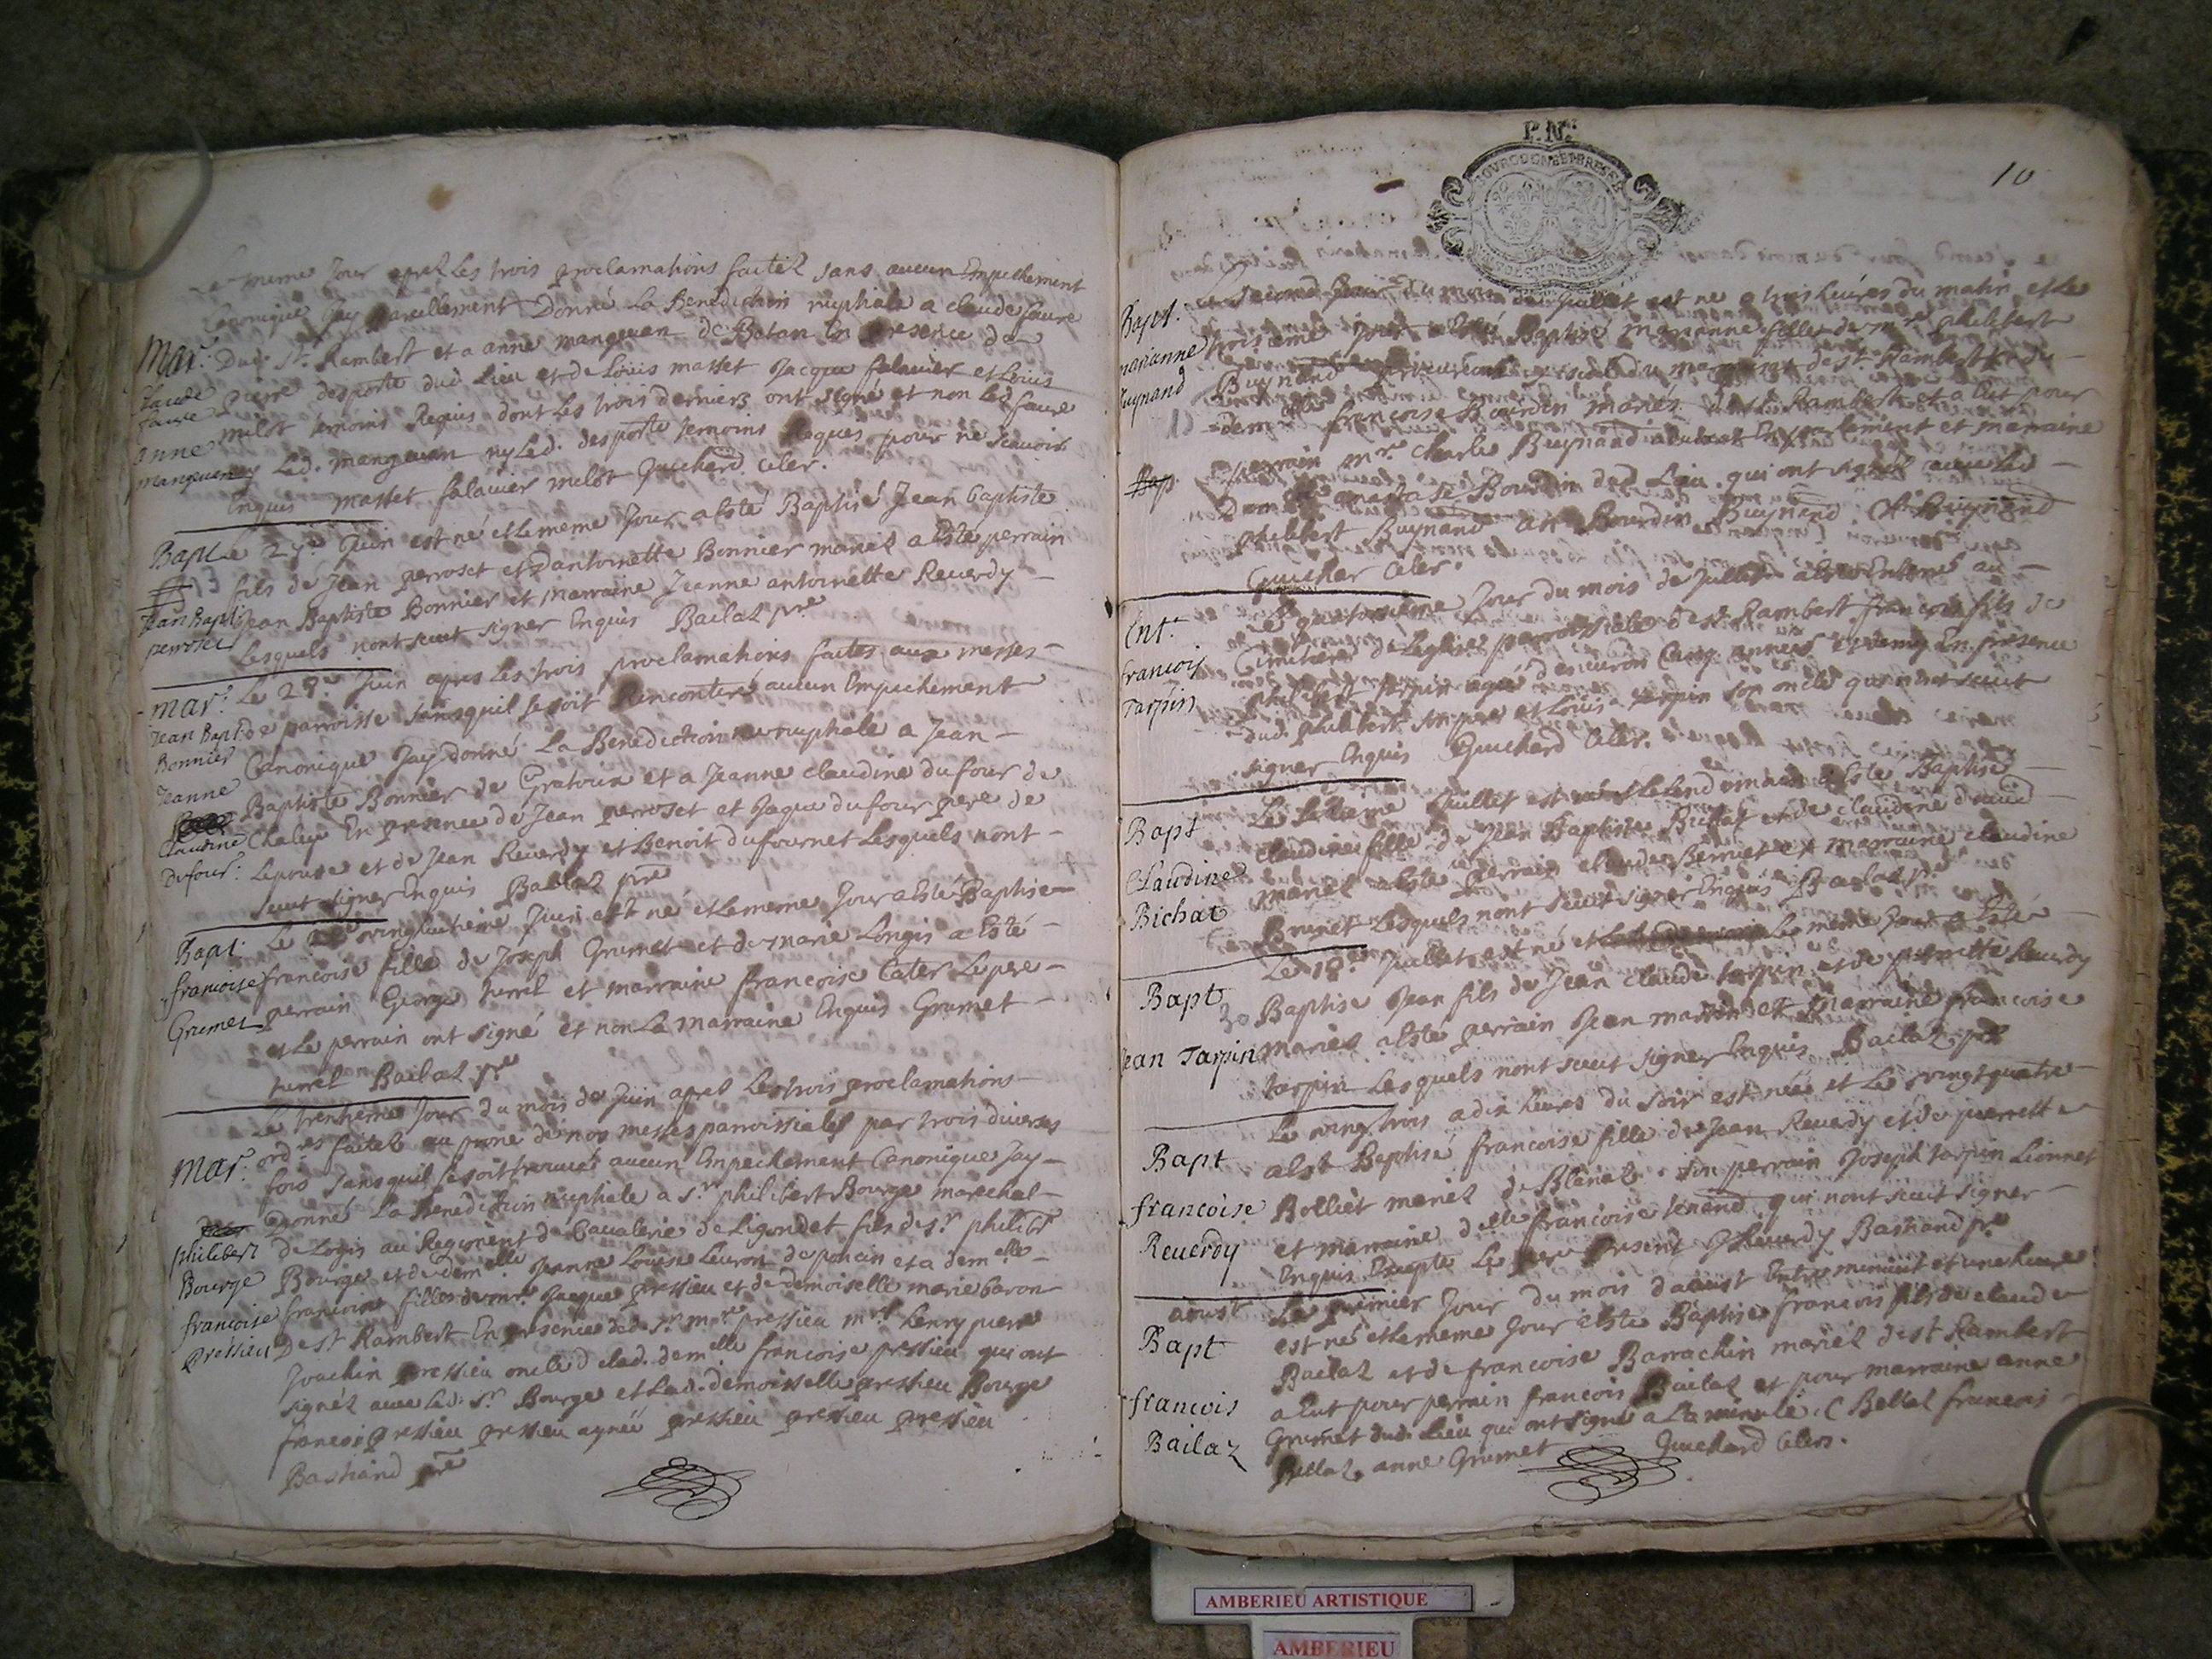 Le meme Jour apres Les trois proclamations faites sans aucun Empechement
Canonique Jay pareillement Donné La Benediction nuptiale a claude faure
Mar.
Dud. St. Rambert et a anne manguean de Batan En presence de
Claude
faure
anne
pierre desporte dud. Lieu et de Louis masset Jacque falavier et Louis
milot temoins Requis dont Les trois derniers ont signé et non Led. faure
ny Led. desporte temoins Requis pour ne scauoir
Enquis masset falavier milot Guichard
Bapt
Le juin est né et Le meme Jour a Esté Baptisé Jean baptiste
fils de Jean perroset et d'antoinette Bonnier mariez a Esté perrain
Jean Bapt.
perroset
Jean Baptiste Bonnier et marraine Jeanne antoinette Reuerdy
Lesquels nont sceut signer Enquis Bailaz pre
mar.
Le juin apres Les trois proclamations faites aux messes
Jean Bapt.
Bonnier
Jeanne
Claudine
Dufour.
de parroisse sans quil se soit Rencontré aucun Empechement
Canonique Jay donné La Benediction nuptiale a Jean
Baptiste Bonnier de Gratoux et a Jeanne claudine dufour de
Chaley En presence de Jean perroset et Jaque dufour pere de
Lepouse et de Jean Reuerdy et Benoit dufournet Lesquels nont
sceut signer Enquis Bailaz pre
Bapt.
francoise
Grumet
Le vinghuitieme Juin est né et Le meme Jour a Esté Baptisé
francoise fille de Joseph Grumet et de marie Longis a Esté
perrain George turrel et marraine francoise Cater Le pere
et Le perrain ont signé et non La marraine Enquis Grumet
turrel Bailaz pre
Mar.
Le trentieme Jour du mois de Juin apres Les trois proclamations
ord. res faites au prone de nos messes parroissiales par trois diverses
fois sans quil se soit trouué aucun Empechement Canonique Jay
philibert
Bourge
francoise
pressieu
Donné La Benediction nuptiale a Sr. philibert Bourge marechal
de Logis au Regiment de Cavalerie de Ligondet fils de Sr philibt
Bourge et de demelle Jeanne Louise Leuron de poncin et a demelle
francoise fille de mre Jacque pressieu et de demoiselle marie baron
De St Rambert En presence dud. Sr. mre pressieu mre henry pierre
Joachin pressieu oncle de lad. demelle francoise pressieu qui ont
signéz avec Led. Sr. Bourge et Lad. demoisselle pressieu Bourge
francois pressieu pressieu aynée pressieu pressieu pressieu
Bastiand pre
P. No.
BOURGOGNE ET BRESSE
10
Bapt.
marianne
Buynand
Le second Jour du mois de Juillet est ne a trois heures du matin et Le
troisieme Jour a Esté Baptisé marianne fille de mre philibert
Buynand procureur du mandement de St. Rambert et de
demelle francoise Bourdin mariés de St. Rambert et a Eut pour
perrain mre. Charle Buynand aduocat En parlement et marraine
Bap
Demelle anastase Bourdin dud. Lieu qui ont signéz avec Led.
philibert Buynand an Bourdin Buynand Ch Buynand
Guichar
Ent.
francois
Tarpin
Le quatorzieme Jour du mois de Juillet a Esté Enterré au
Cimetiere de Leglise parroissiale de St. Rambert francois fils de
philibert tarpin agé denuiron Cinq années et demy En presence
dud. philibert son pere et Louis tarpin son oncle qui nont sceut
signer Enquis Guichard
Bapt
Claudine
Bichat
Le Juillet est né et Le lendemain a Esté Baptisé
claudine fille de Jean Baptiste et de claudine
mariez a Esté perrain claude et marraine claudine
Brunet Lesquels nont sceut signer Enquis Bailaz pre
Bapt
30
Jean Tarpin
Le 18e Juillet est né et Le meme Jour a Esté
Baptisé Jean fils de Jean claude tarpin et de pierrette Reuerdy
mariez a Esté perrain Jean et marraine francoise
tarpin Lesquels nont sceut signer Enquis Bailaz pre
Bapt
francoise
Reuerdy
Le ving trois a dix heures du soir est née et Le vingt quatre
a Est Baptisé francoise fille de Jean Reuerdy et de pierrette
Bolliet mariez de Blanaz son perrain Joseph tarpin Lionnet
et marraine delle francoise tenand qui nont sceut signer
Enquis Excepte Le pere present J Reuerdy Bastiand pre
aoust
Bapt
francois
Bailaz
Le premier Jour du mois daoust Entre minuit et une heure
est né et Le meme Jour a Esté Baptisé francois fils de claude
Bailaz et de francoise Barrachin mariéz de St Rambert
a Eut pour perrain francois Bailaz et pour marraine anne
Grumet dud. Lieu qui ont signé a La minute. C Bellaz francois
Bellaz anne Grumet Guichard
AMBERIEU ARTISTIQUE
AMBERIEU